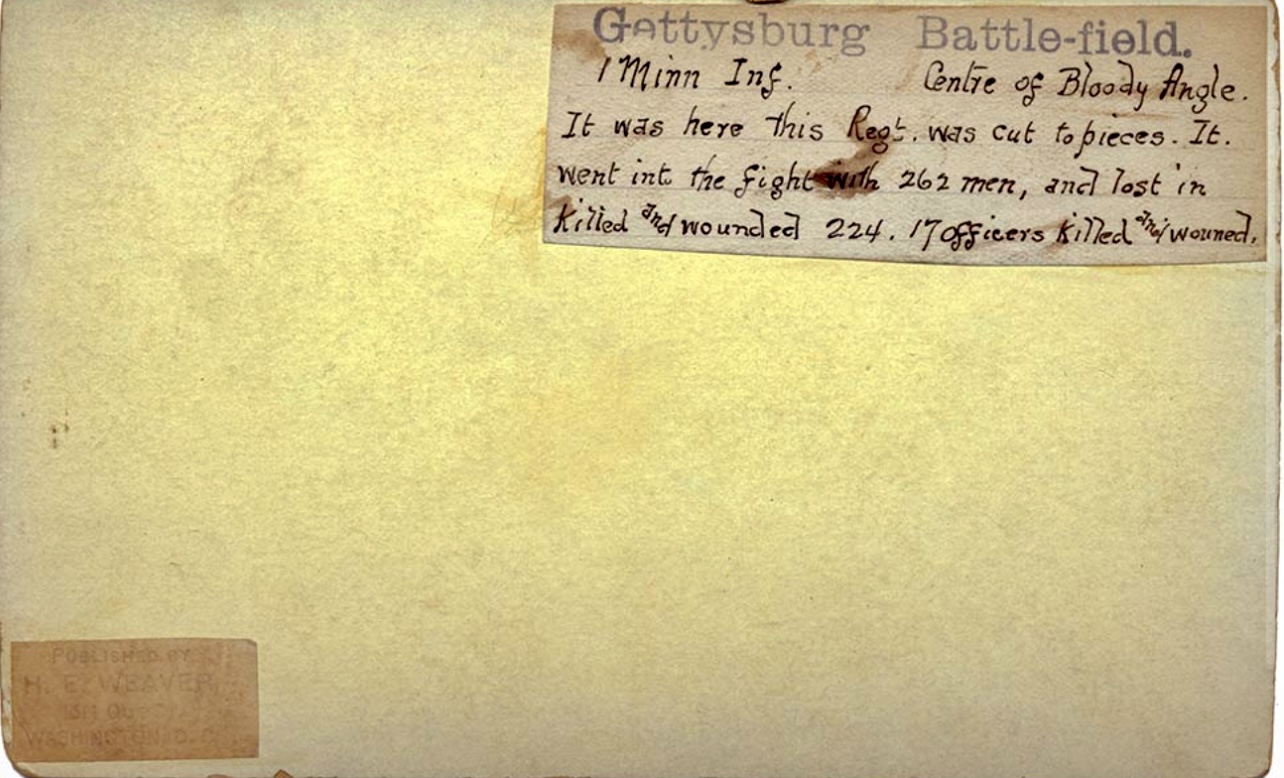 Gettysburg Battle-field.
1 Minn Inf. Centre of Bloody Angle.
It was here this Regt. was cut to pieces. It.
went int the fight with 262 men, and lost in
Killed and wounded 224. 17 officers Killed and wouned.
PUBLISHED BY
H. E. WEAVER
WASHINGTON, D.C.